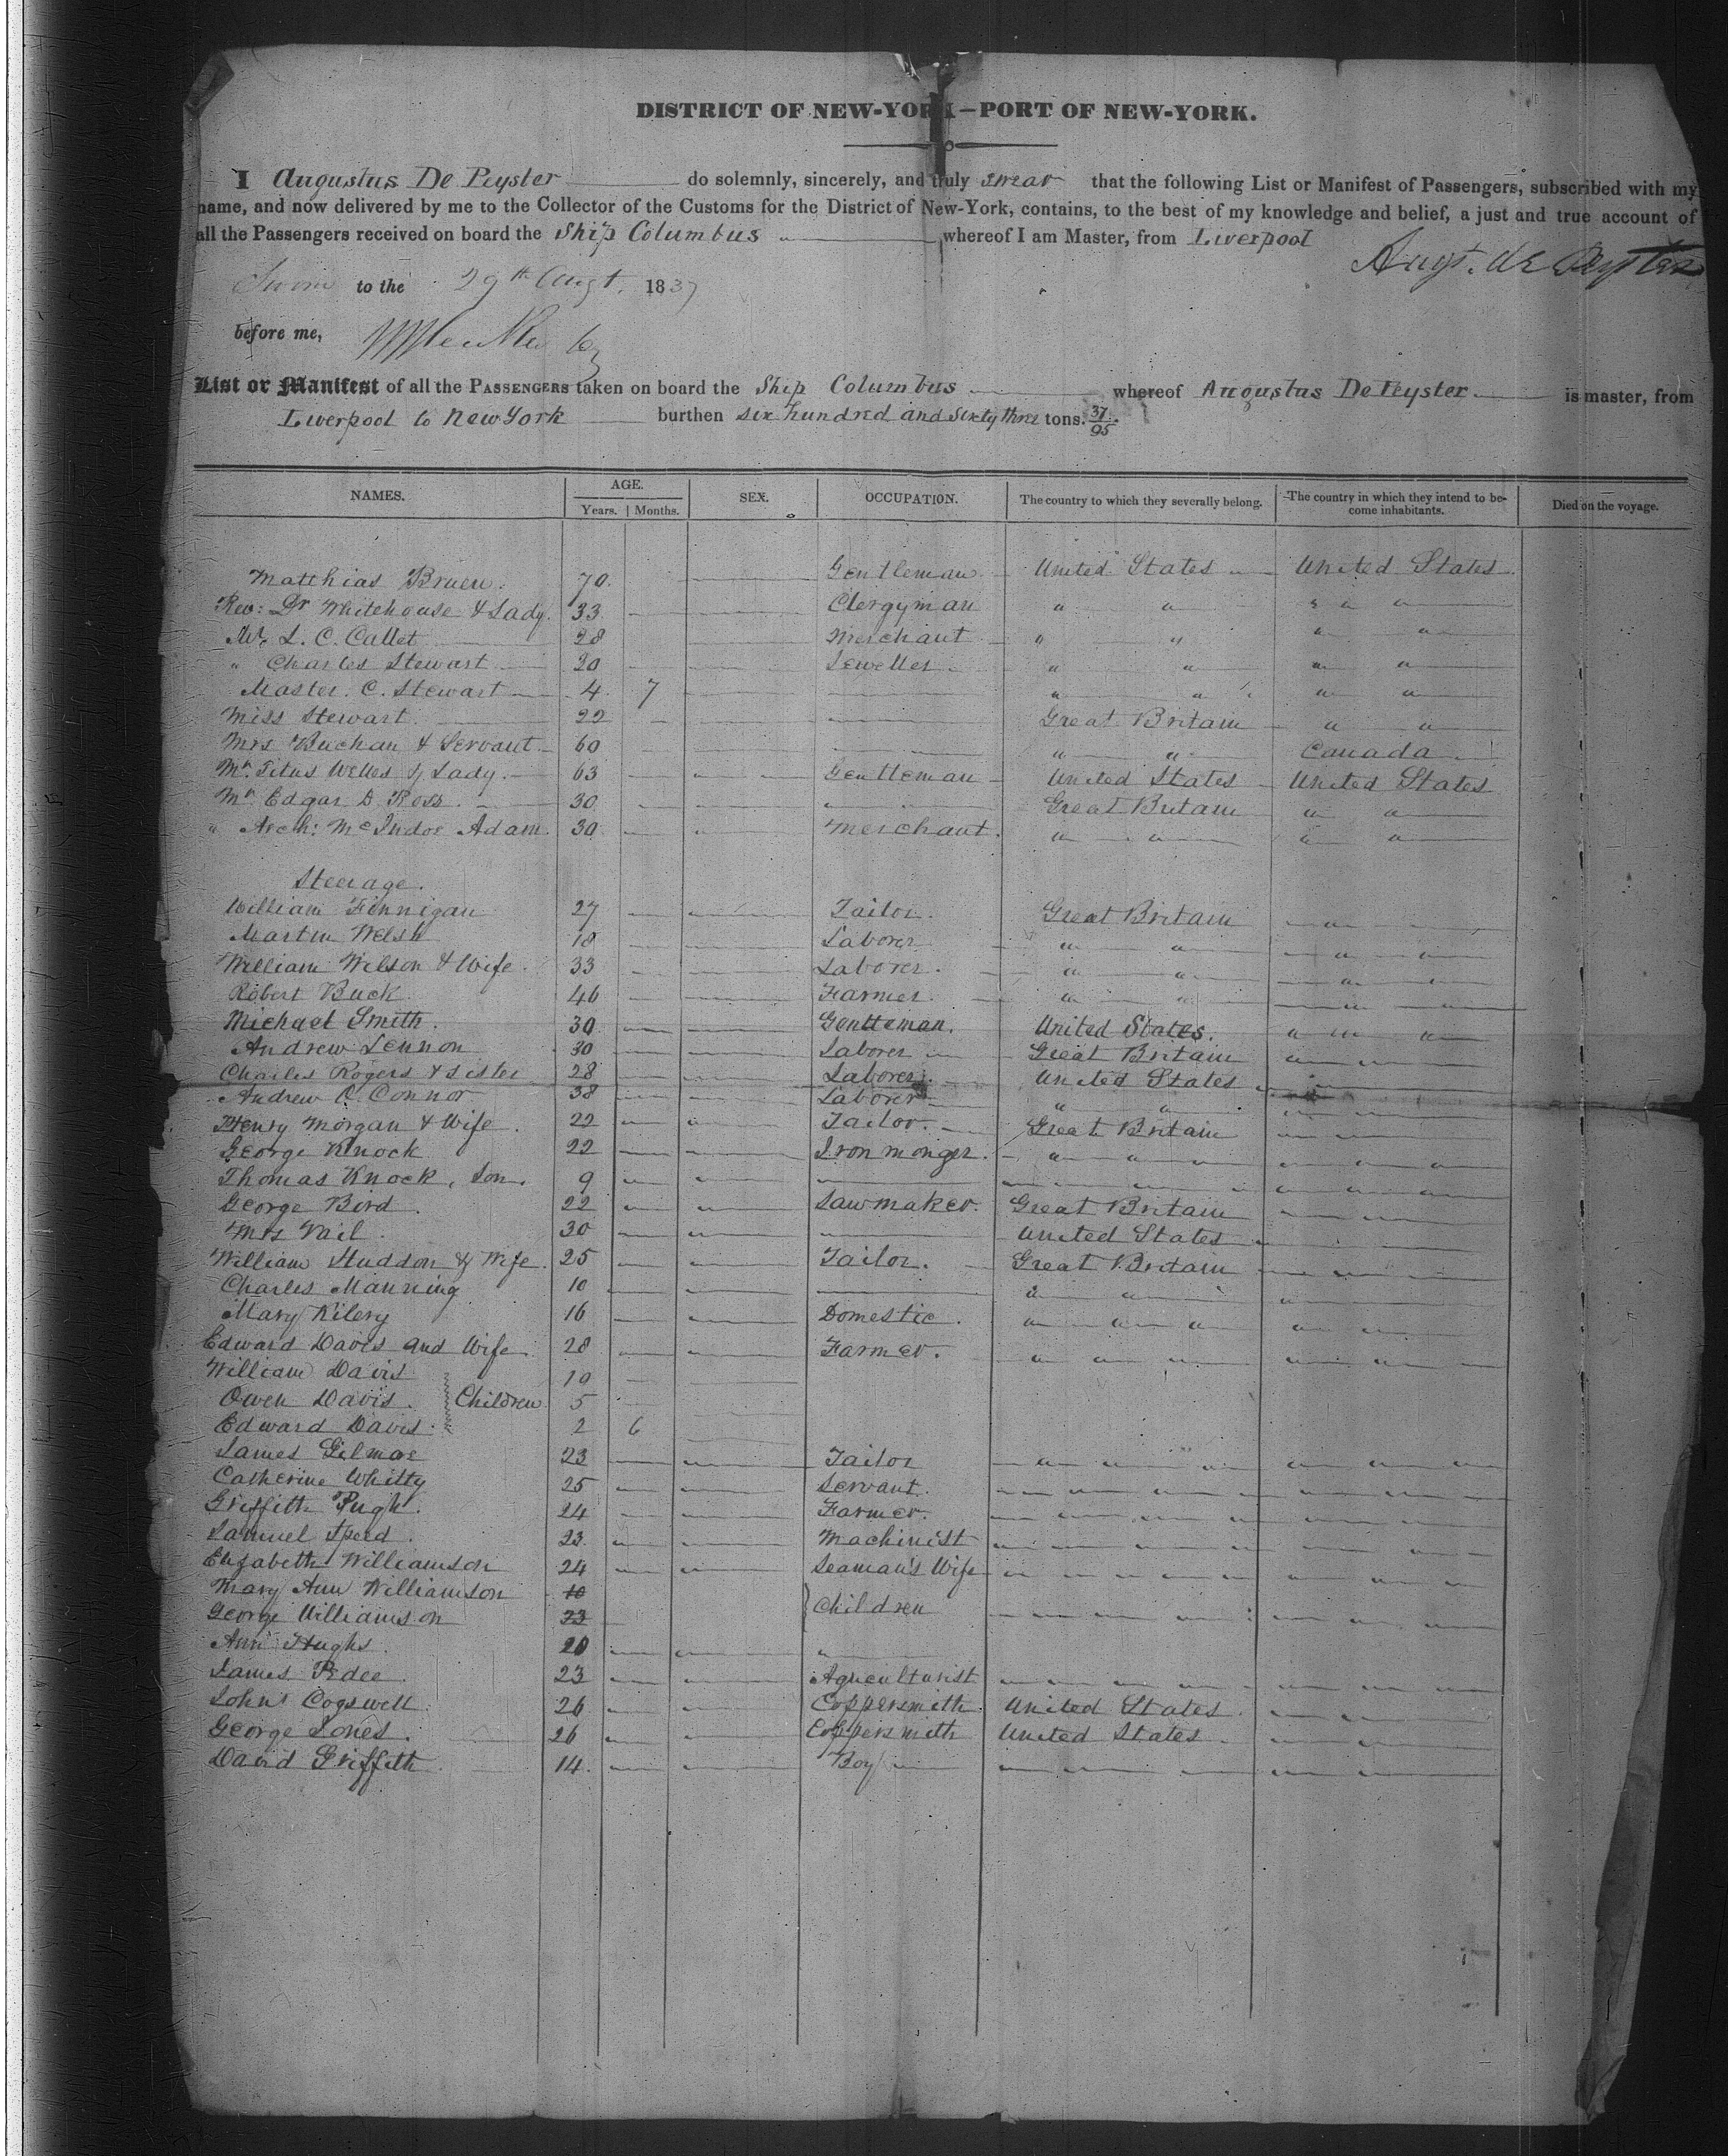 DISTRICT OF NEW-YORK—PORT OF NEW-YORK.
I Augustus De Peyster do solemnly, sincerely, and truly swear that the following List or Manifest of Passengers, subscribed with my
name, and now delivered by me to the Collector of the Customs for the District of New-York, contains, to the best of my knowledge and belief, a just and true account of
all the Passengers received on board the Ship Columbus whereof I am Master, from Liverpool
Augt. de Peyster
Sworn to the 29th Augt. 1837
before me,
List or Manifest of all the PASSENGERS taken on board the Ship Columbus whereof Augustus De Peyster is master, from
Liverpool to New York burthen six hundred and Sixty three tons. 37/95.
NAMES. AGE. SEX. OCCUPATION. The country to which they severally belong. The country in which they intend to be- Died on the voyage.
Years. Months. come inhabitants.
Matthias Bruen. 70. Gentleman United States United States
Rev: Dr Whitehouse & Lady. 33 Clergyman " " " "
Mr. L. C. Callet 28 Merchant " " " "
" Charles Stewart 20 Jeweller " " " "
Master. C. Stewart 4 7 " " " "
Miss Stewart 22 Great Britain " "
Mrs Buchan & Servant 60 " " Canada
Mr. Titus Welles & Lady. 63 Gentleman United States United States
Mr. Edgar D. Ross 30 " Great Britain " "
" Arch: McIndoe Adam 30 Merchant. " " " "
Steerage.
William Finnigan 27 Tailor. Great Britain "
Martin Welsh 18 Laborer " " " "
William Wilson & Wife. 33 Laborer. " " " "
Robert Buck 46 Farmer. " " "
Michael Smith. 30 Gentleman. United States. " " "
Andrew Lennon 30 Laborer Great Britain " "
Charles Rogers & Sister 28 Laborer. United States "
Andrew O. Connor 38 Laborer " " " "
Henry Morgan & Wife 22 Tailor. Great Britain " "
George Knock 22 Iron monger. " " " " " "
Thomas Knock, Son. 9 " " " " " "
George Bird. 22 Sawmaker. Great Britain " "
Mrs Nail 30 " United States "
William Studdon & Wife. 25 Tailor. Great Britain " " "
Charles Manning 10 " " "
Mary Rilery 16 Domestic. " " " " "
Edward Davis and Wife 28 Farmer. " " " " " "
William Davis 10
Owen Davis. Children 5
Edward Davis. 2 6
James Gilmore 23 Tailor " " " " " "
Catherine Whitty 25 Servant. " " " " " "
Griffith Pugh. 24 Farmer. " " " " " "
Samuel Speed. 23. Machinist " " " " " "
Elizabeth Williamson 24 Seaman's Wife " " " " " "
Mary Ann Williamson 10
George Williamson Children " " " " " "
Ann Hughs. 20 "
James Pedee 23 Agriculturist " " " " " "
John Cogswell 26 Coppersmith United States. " "
George Jones. 26 Coppersmith United States " "
David Griffith 14. Boy " " " " " "